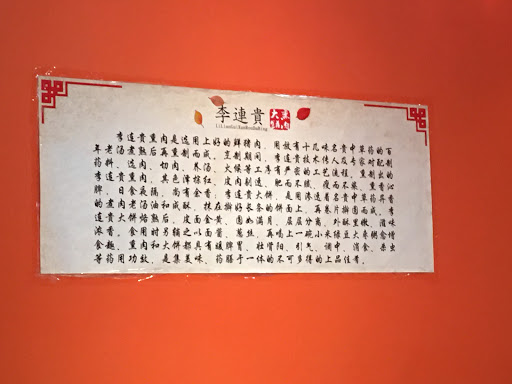 李連貴
LiLianGuiXunRouDaBing
李连贵熏肉是选用上好的鲜猪肉，用放有十几味名贵中草药的百
年老汤煮熟后再熏制而成。烹制期间，李连贵技术传人专家对配制
药料、选肉、切肉、养汤、火候等工序有严密的工艺流程。李
连贵熏肉，其色泽棕红，皮肉剔透，肥而不腻，瘦而不柴，熏香沁
脾，日食夜嗝，尚有余香。李连贵大饼，是用渗透着名贵中草药
的煮肉老汤油和成酥，抹在擀好长条的饼面上，再卷片擀圆而成。李
连贵大饼烙熟后，皮面金黄，圆如满月，层层分离，外酥里嫩，滋味
浓香。食用时另辅之以面酱、葱丝，再喝上一碗小米绿豆大枣粥愈增
食趣。熏肉和大饼都具有暖脾胃、壮肾阳、引气、调中、消食、杀虫
等药用功效，是集美味、药膳于一体的不可多得的上品佳肴。